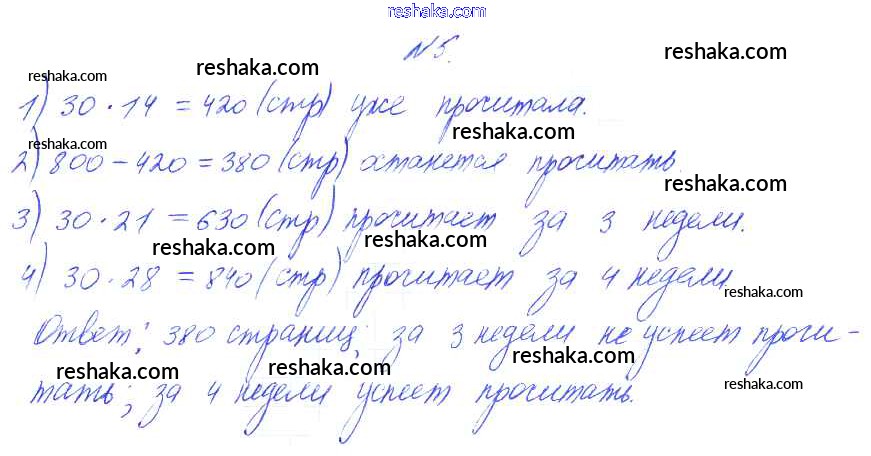 reshaka.com
№5. reshaka.com
reshaka.com reshaka.com
1) 30 · 14 = 420 (стр) уже прочитала.
reshaka.com reshaka.com
2) 800 - 420 = 380 (стр) останется прочитать.
reshaka.com
3) 30 · 21 = 630 (стр) прочитает за 3 недели.
reshaka.com reshaka.com
4) 30 · 28 = 840 (стр) прочитает за 4 недели.
reshaka.com
Ответ: 380 страниц; за 3 недели не успеет прочи-
reshaka.com reshaka.com reshaka.com
тать; за 4 недели успеет прочитать.
reshaka.com